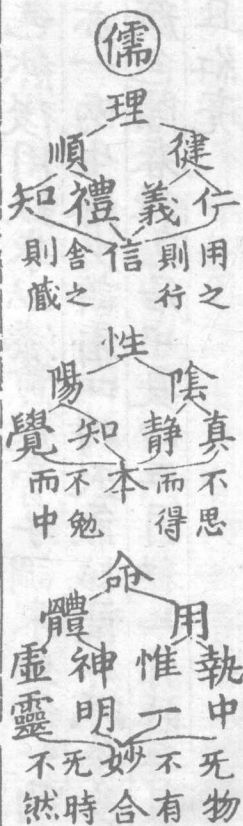 儒
理
健 順
仁 義 禮 知
信
用之則行
舍之則藏
性
陰 陽
真 静 知 覺
本
不思而得
不勉而中
命
用 體
執中 惟一 神明 虛靈
妙合
无物不有
无時不然